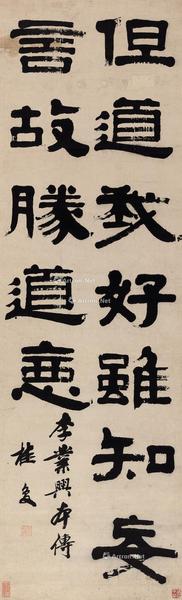 但道我好雖知妄
言故勝道惡
李業興本傳
桂馥